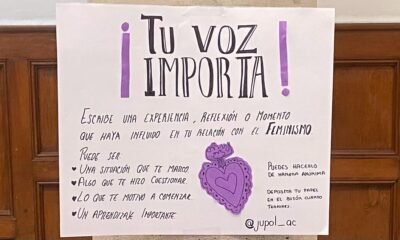 ¡TU VOZ
IMPORTA!
ESCRIBE UNA EXPERIENCIA, REFLEXIÓN O MOMENTO
QUE HAYA INFLUIDO EN TU RELACIÓN CON EL FEMINISMO
PUEDE SER:
♥ UNA SITUACIÓN QUE TE MARCÓ.
♥ ALGO QUE TE HIZO CUESTIONAR.
♥ LO QUE TE MOTIVO A COMENZAR.
♥ UN APRENDIZAJE IMPORTANTE.
PUEDES HACERLO
DE MANERA ANÓNIMA
DEPOSITA TU PAPEL
EN EL BUZÓN CUANDO
TERMINES.
@jupol_ac